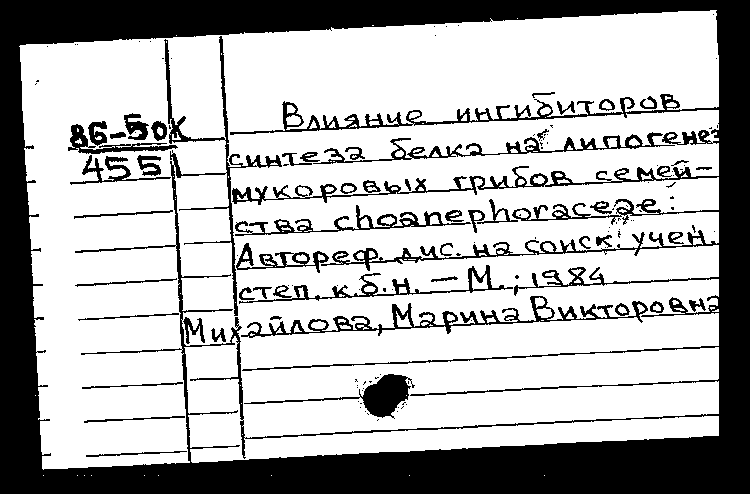 Влияние ингибиторов
86-50К
синтеза белка на липогенез
4551
мукоровых грибов семей-
ства choanephoraceae:
Автореф. дис. на соиск. учен.
степ. к.б.н. — М.; 1984.
Михайлова, Марина Викторовна